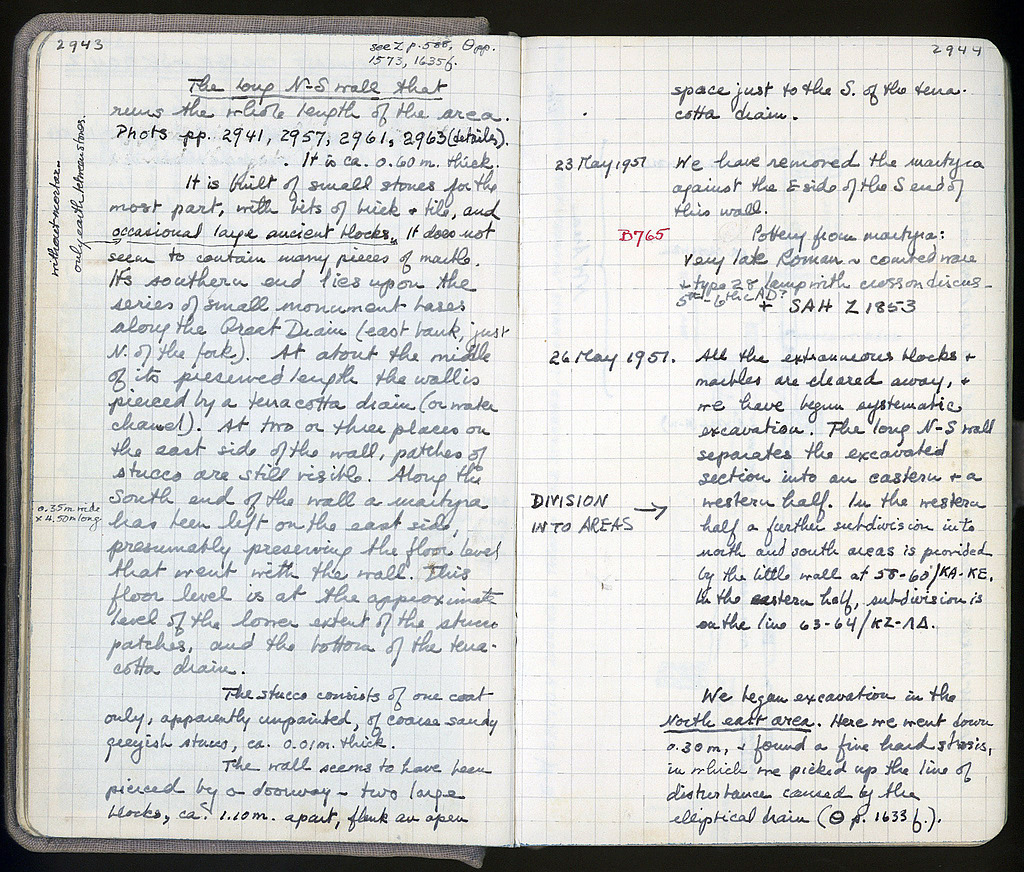 2943
see Z p. 588, Θ pp.
1573, 1635 f.
The long N-S wall that
runs the whole length of the area.
Phots pp. 2941, 2957, 2961, 2963 (details).
. It is ca. 0.60 m. thick.
It is built of small stones for the
most part, with bits of brick + tile, and
occasional large ancient blocks, It does not
without mortar
only earth between stones.
seem to contain many pieces of marble.
Its southern end lies upon the
series of small monument bases
along the Great Drain (east bank, just
N. of the fork). At about the middle
of its preserved length the wall is
pierced by a terracotta drain (or water
channel). At two or three places on
the east side of the wall, patches of
stucco are still visible. Along the
south end of the wall a martyra
0.35 m. wide
x 4.50 m long
has been left on the east side,
presumably preserving the floor level
that went with the wall. This
floor level is at the approximate
level of the lower extent of the stucco
patches, and the bottom of the terra-
cotta drain.
The stucco consists of one coat
only, apparently unpainted, of coarse sandy
greyish stucco, ca. 0.01 m. thick.
The wall seems to have been
pierced by a doorway – two large
blocks, ca. 1.10 m. apart, flank an open
2944
space just to the S. of the terra-
cotta drain.
23 May 1951 We have removed the martyra
against the E side of the S end of
this wall.
B765 Pottery from martyra:
very late Roman – combed ware
+ type 28 lamp with cross on discus –
5th - 6th c AD?
+ SAH Z 1853
26 May 1951. All the extraneous blocks +
marbles are cleared away, +
we have begun systematic
excavation. The long N-S wall
separates the excavated
section into an eastern + a
DIVISION
INTO AREAS →
western half. In the western
half a further subdivision into
north and south areas is provided
by the little wall at 58-60/ΚΑ-ΚΕ.
In the eastern half, subdivision is
on the line 63-64/ΚΖ-ΛΔ.
We began excavation in the
North east area. Here we went down
0.30 m, + found a fine hard strosis,
in which we picked up the line of
disturbance caused by the
elliptical drain (Θ p. 1633 f.).